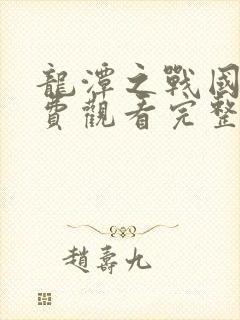 龍潭之戰國
費觀看完整
趙壽九